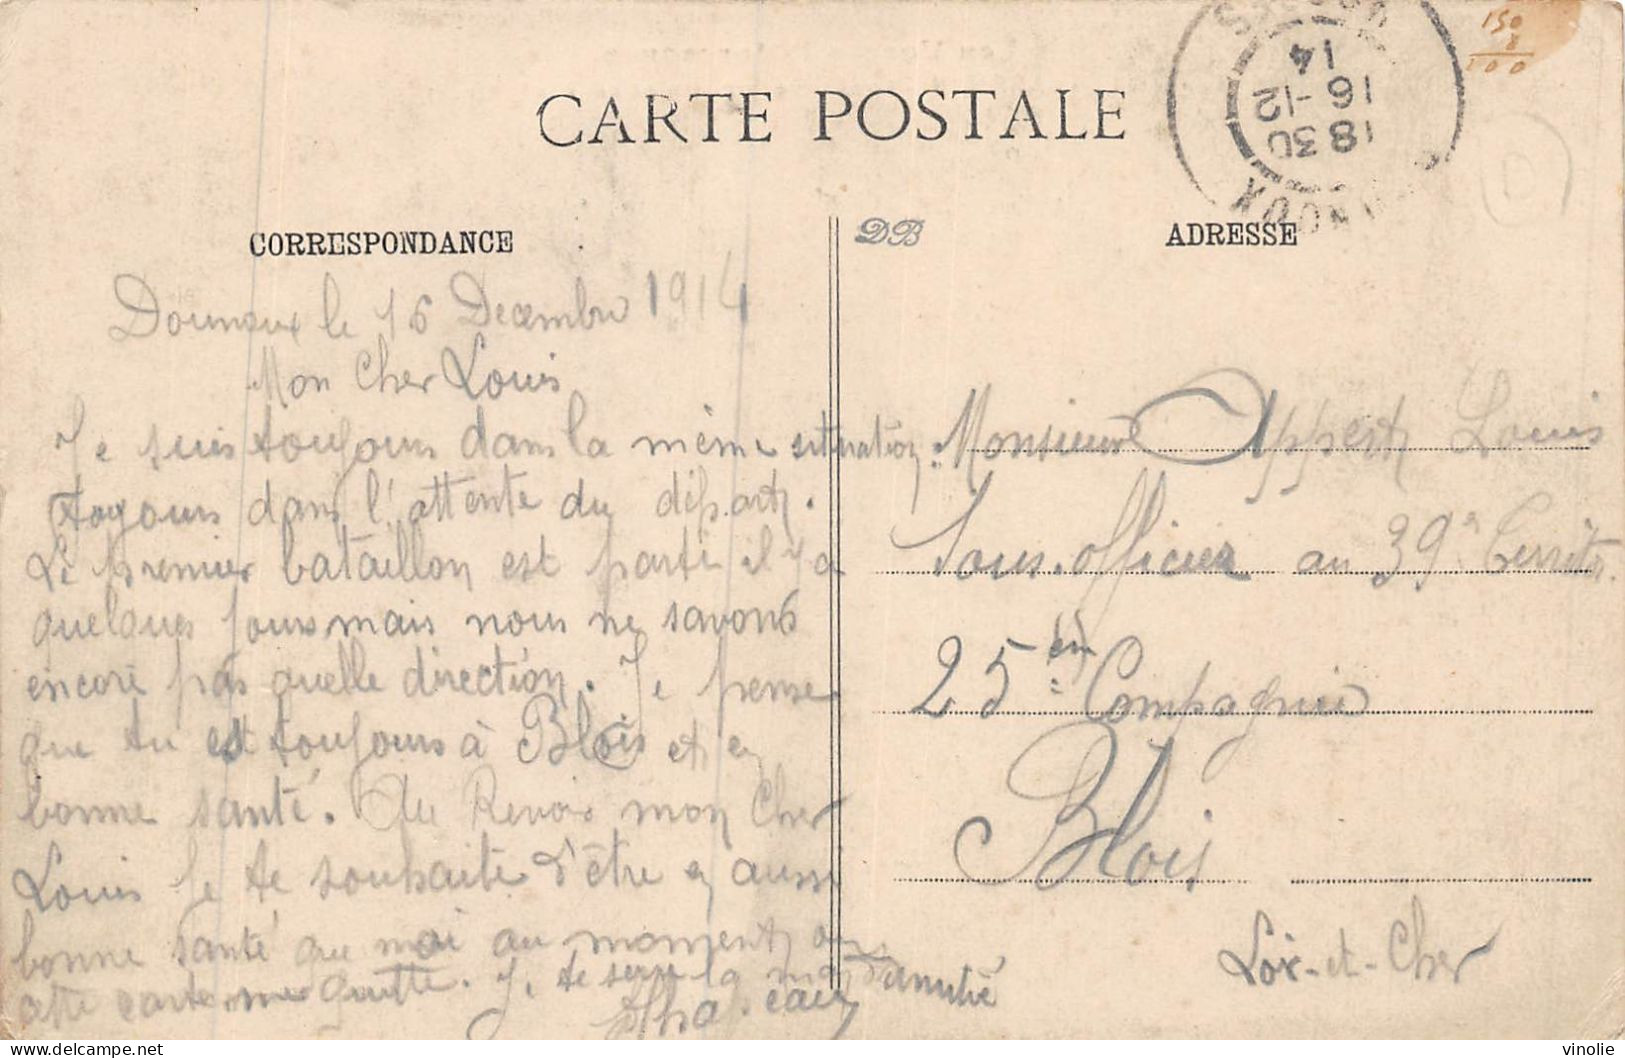 CARTE POSTALE
18 30
16-12
14
150
100
CORRESPONDANCE
DB
ADRESSE
Dournoux le 16 Decembre 1914
Mon Cher Louis
Je suis toujours dans la même situation.
toujours dans l'attente du départ.
Le premier bataillon est parti il y a
quelques jours mais nous ne savons
encore pas quelle direction. Je pense
que tu est toujours à Blois et en
bonne santé. Au Revoir mon Cher
Louis Je te souhaite d'être en aussi
bonne santé que moi au moment ou
cette carte me quitte. Je te serre la main d'amitié
Chapeau
Monsieur Appert Louis
Sous-officier au 39e Territ.
25ème Compagnie
Blois
Loir-et-Cher
delcampe.net
vinolie